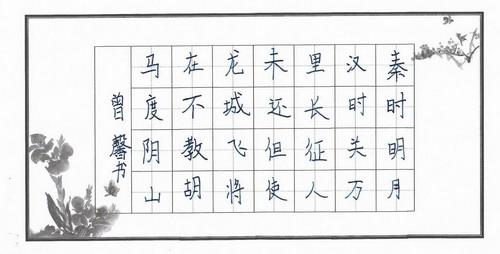 秦时明月
汉时关万
里长征人
未还但使
龙城飞将
在不教胡
马度阴山
曾馨书